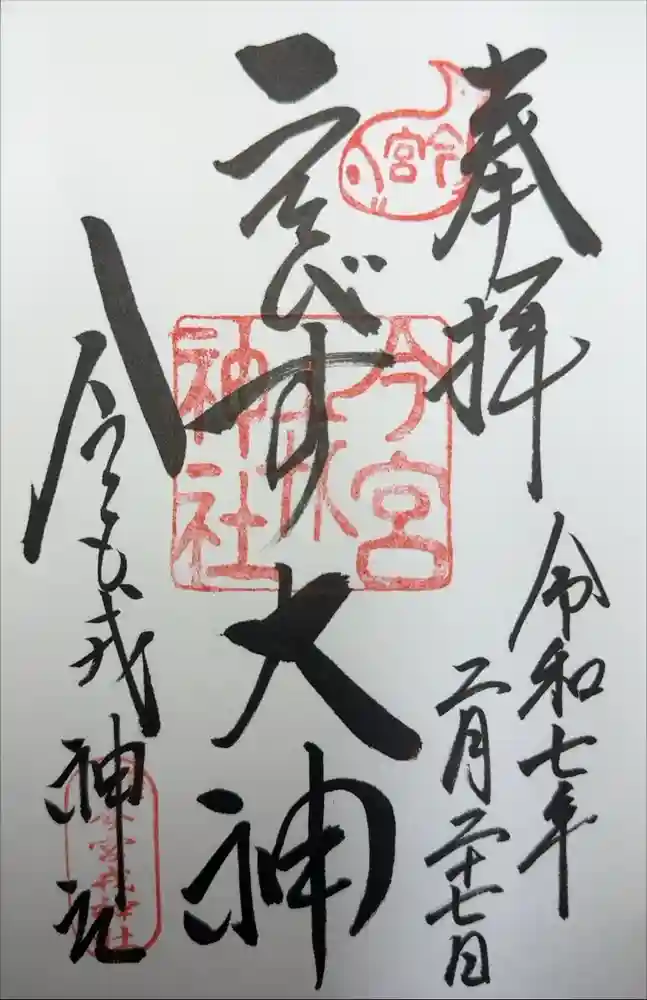 奉拝
令和七年
二月二十七日
今宮
ゑびす大神
今宮
神社
今宮戎神社